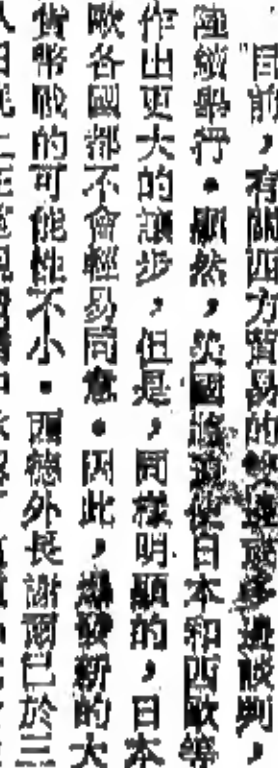 目前，有關四方貿易的雙邊或多邊談判，
陸續舉行。顯然，美國將迫使日本和西歐等
作出更大的讓步，但是，同樣明顯的，日本
歐各國都不會輕易同意。因此，爆發新的大
貨幣戰的可能性不小。西德外長謝爾已於三